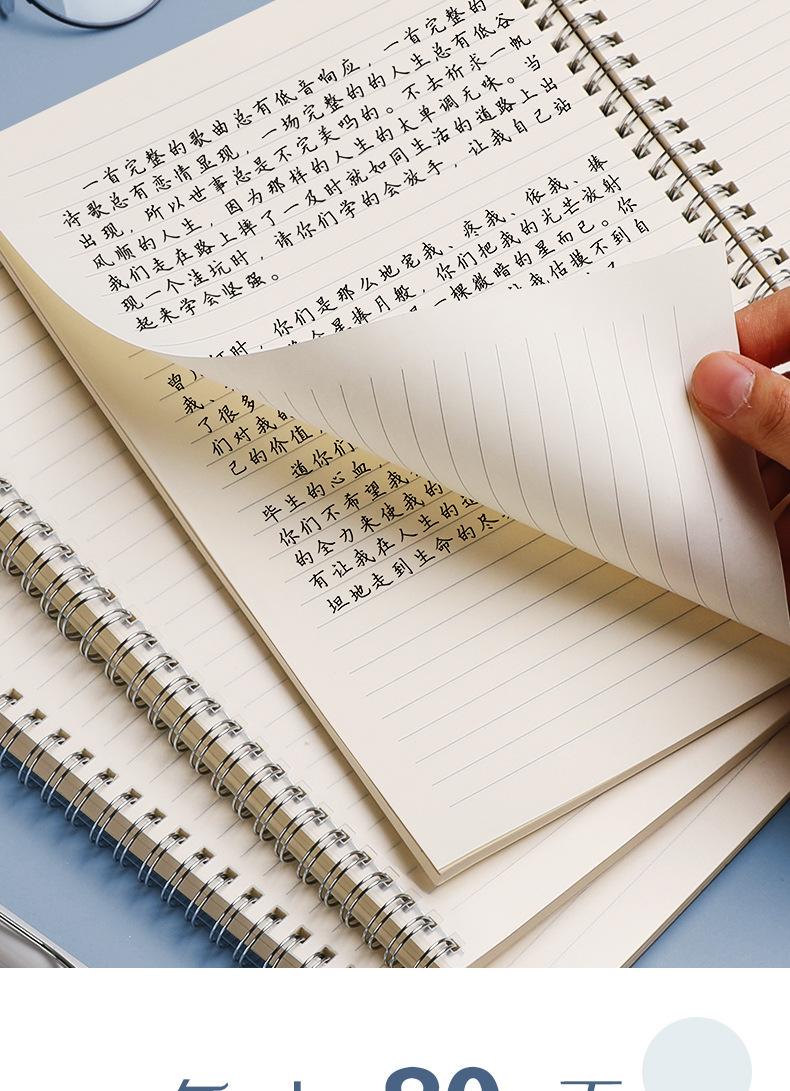 一首完整的歌曲总有低音响应，一首完整的
诗歌总有恋情显现，一场完整的的人生总有低谷
出现，所以世事总是不完美吗的。不去祈求一帆
风顺的人生，因为那样的人生的太单调无味。当
我们走在路上摔了一及时就如同生活的道路上出
现一个洼坑时，请你们学的会放手，让我自己站
起来学会坚强。
时，你们是那么地宠我、疼我、依我、捧
我、星捧月般，你们把我的光芒放射
了很多一棵微暗的星而已。你
们对我的让我估摸不到自
己的价值，
道你们
毕生的心血，
你们不希望我
的全力来使我的
有让我在人生的
坦地走到生命的尽
80